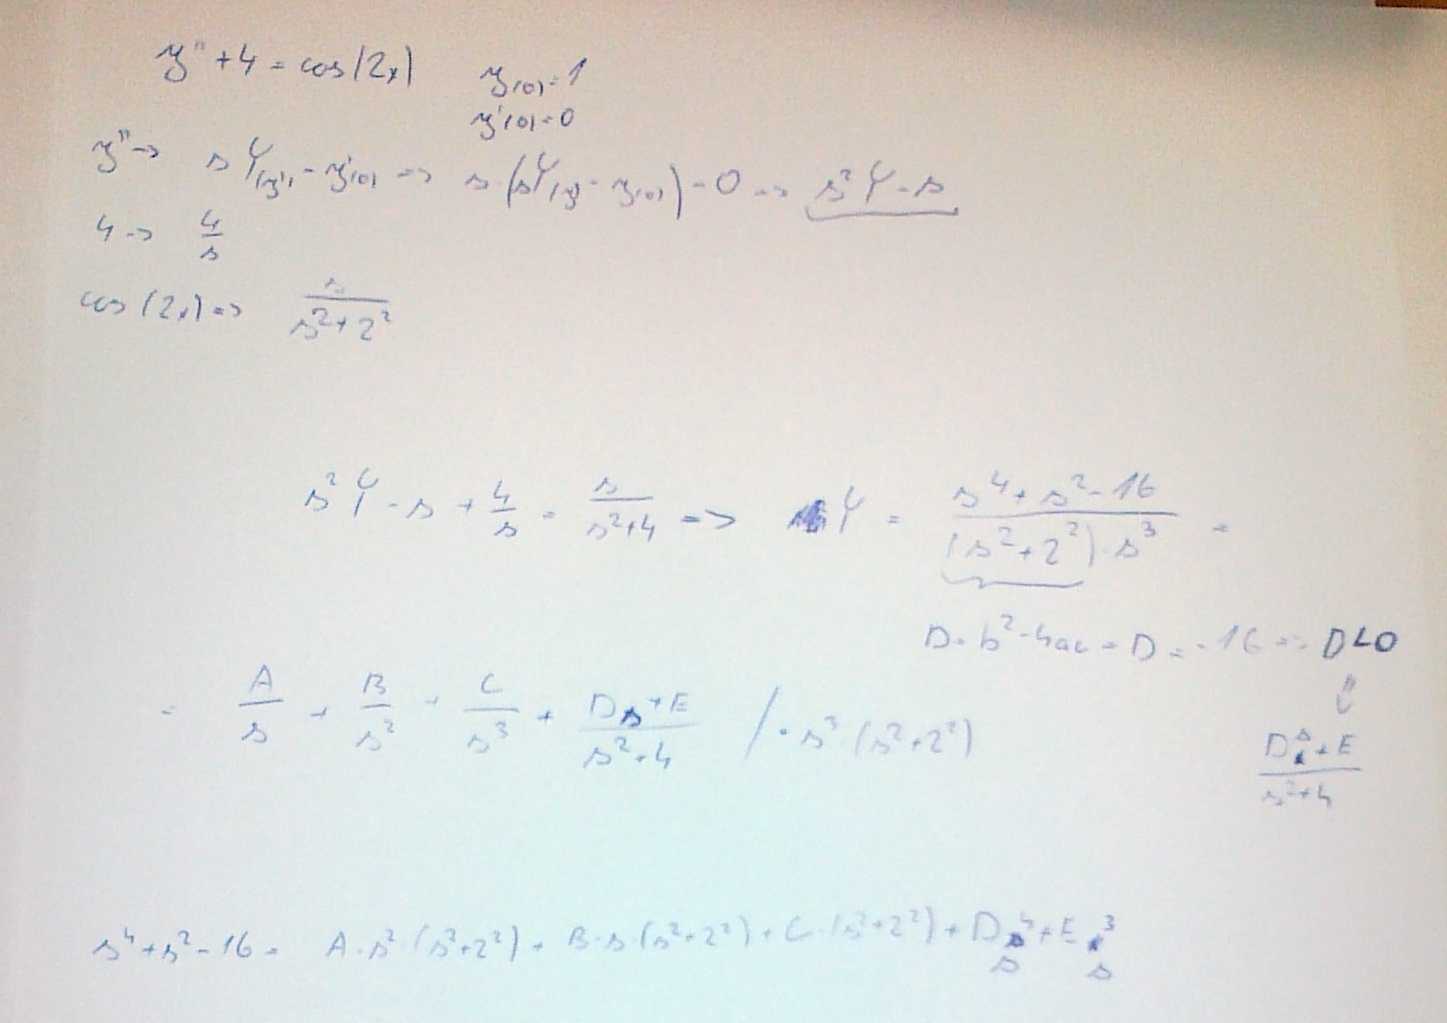 y'' + 4 = cos(2x)   y(0) = 1
y'(0) = 0
y'' -> s Y(y') - y'(0) => s·(sY(y) - y(0)) - 0 => s²Y - s
4 -> 4/s
cos(2x) => s/(s²+2²)
s²Y - s + 4/s = s/(s²+4) => Y = (s⁴+s²-16)/((s²+2²)·s³) =
D = b²-4ac = D = -16 => D<0
⇓
= A/s + B/s² + C/s³ + (Ds+E)/(s²+4) /·s³(s²+2²)   (Ds+E)/(s²+4)
s⁴+s²-16 = A·s²·(s²+2²) + B·s·(s²+2²) + C·(s²+2²) + Ds⁴ + Es³